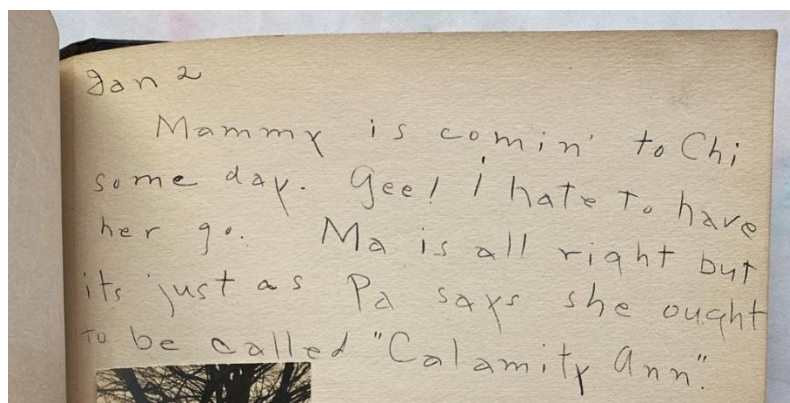 Jan 2
Mammy is comin' to Chi
some day. Gee! I hate to have
her go. Ma is all right but
its just as Pa says she ought
to be called "Calamity Ann".